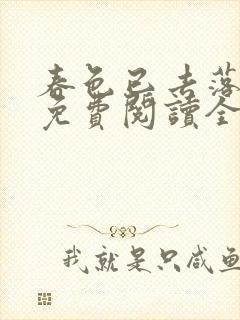 春色已去落
免費閱讀全
我就是只咸鱼